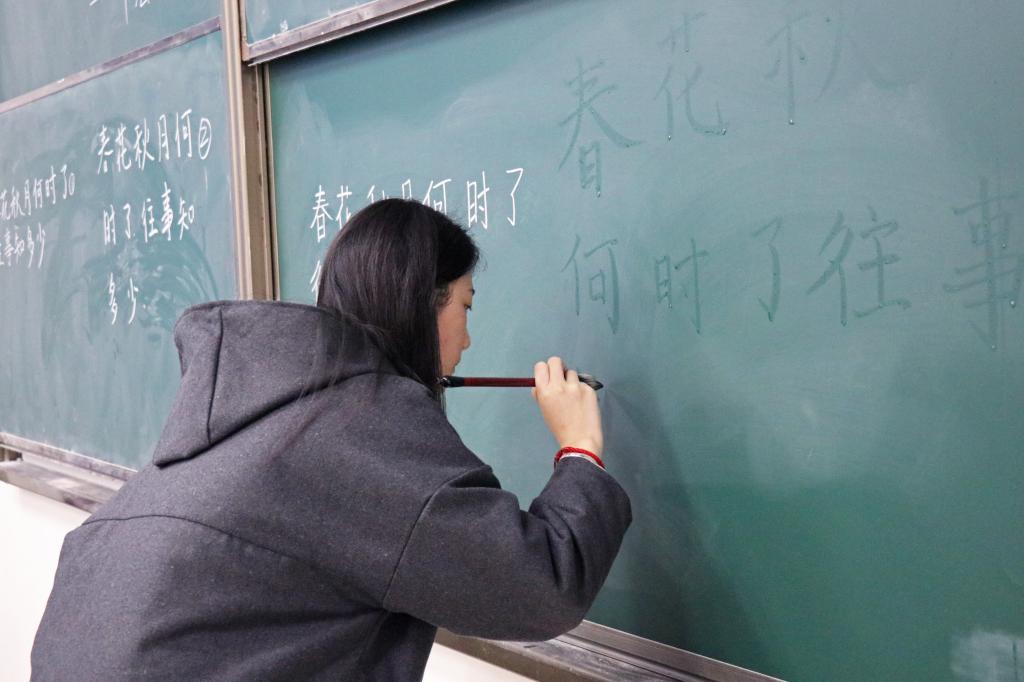 花秋月何时了
事知多少
春花秋月何②
时了往事知
多少.
春花秋月何时了
春花秋
何时了往事